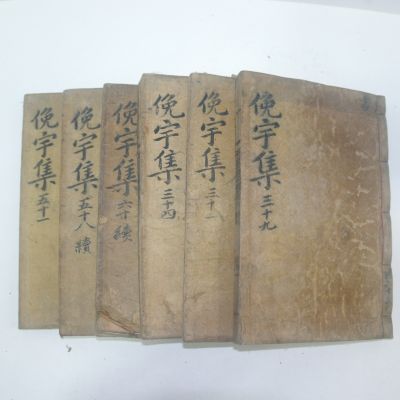 俛宇集 五十一
俛宇集 五十八 續
俛宇集 六十 續
俛宇集 三十四
俛宇集 三十一
俛宇集 三十九